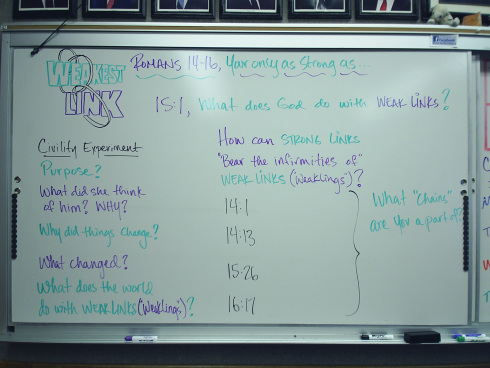 WEAKEST
LINK
ROMANS 14-16, Your only as Strong as...
15:1, What does God do with WEAK LINKS?
Civility Experiment
Purpose?
What did she think
of him? WHY?
Why did things change?
What changed?
What does the world
do with WEAK LINKS ("Weaklings")?
How can STRONG LINKS
"Bear the infirmities of"
WEAK LINKS ("Weaklings")?
14:1
14:13
15:26
16:17
What "Chains"
are you a part of?